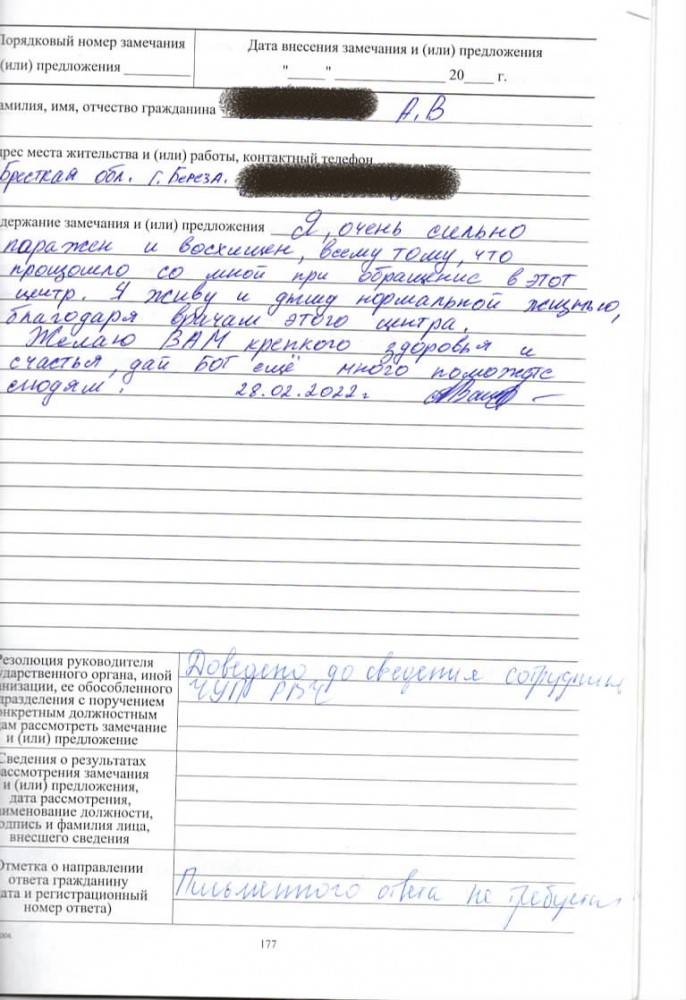 Порядковый номер замечания
(или) предложения
Дата внесения замечания и (или) предложения
"_____" _______________ 20____ г.
амилия, имя, отчество гражданина
А.В
дрес места жительства и (или) работы, контактный телефон
Бресткая обл. г. Береза.
держание замечания и (или) предложения Я, очень сильно
поражен и восхищен, всему тому, что
прощошло со мной при обращение в этот
центр. Я живу и дышу нормальной жещнью,
благодаря врачам этого центра.
Желаю ВАМ крепкого здоровья и
счастья, дай Бог ещё много поможете
людям. 28.02.2022г
Резолюция руководителя
ударственного органа, иной
анизации, ее обособленного
дразделения с поручением
онкретным должностным
ам рассмотреть замечание
и (или) предложение
Доведено до сведения сотрудник
ЧУП РВЧ
Сведения о результатах
ассмотрения замечания
и (или) предложения,
дата рассмотрения,
аименование должности,
одпись и фамилия лица,
внесшего сведения
Отметка о направлении
ответа гражданину
ата и регистрационный
номер ответа)
Письменного ответа не требует
177